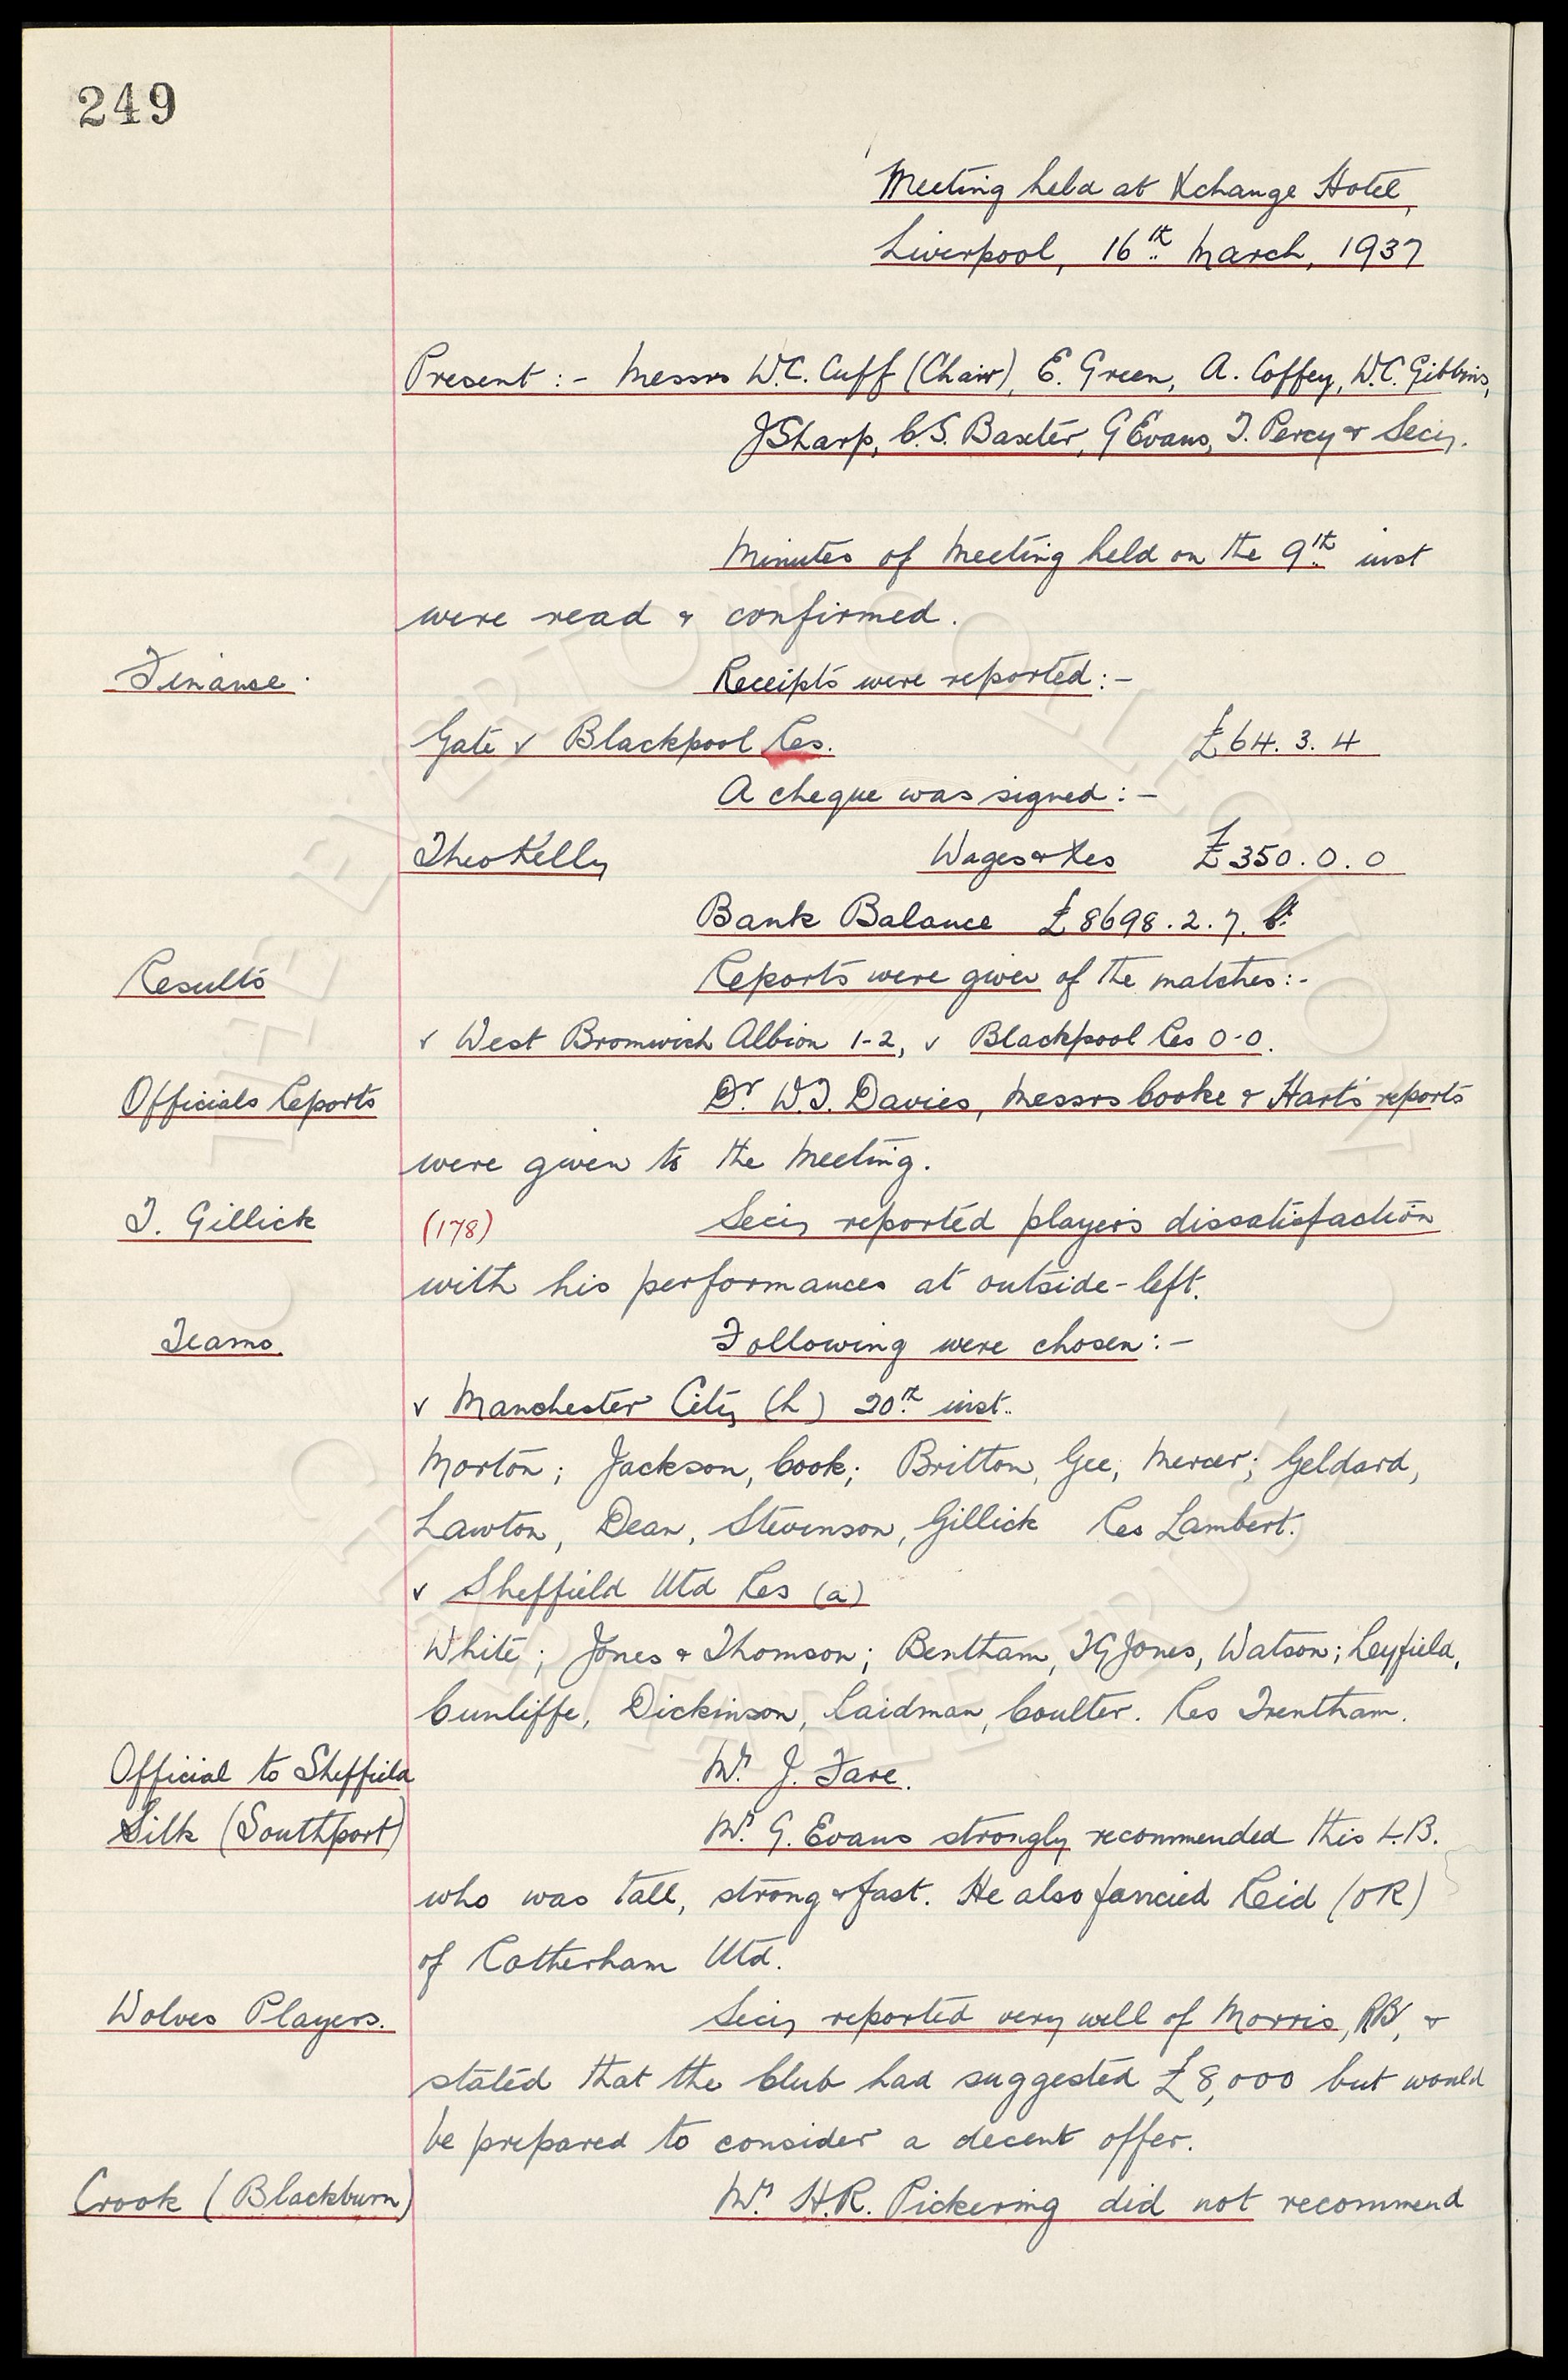 249
Meeting held at Xchange Hotel,
Liverpool, 16th March, 1937
Present :- Messrs W.C. Cuff (Chair), E. Green, A. Coffey, W.C. Gibbins,
J Sharp, C.S. Baxter, G Evans, T. Percy & Secy.
Minutes of Meeting held on the 9th inst
were read & confirmed.
Finance. Receipts were reported :-
Gate v Blackpool Res. £64. 3. 4
A cheque was signed :-
Theo Kelly Wages & Xes £350. 0. 0
Bank Balance £8698. 2. 7.
Results Reports were given of the matches :-
v West Bromwich Albion 1-2, v Blackpool Res 0-0.
Officials Reports Dr. W.J. Davies, Messrs Cooke & Hart's reports
were given to the Meeting.
T. Gillick (178) Secy reported player's dissatisfaction
with his performances at outside-left.
Teams. Following were chosen :-
v Manchester City (h) 20th inst.
Morton; Jackson, Cook; Britton, Gee, Mercer; Geldard,
Lawton, Dean, Stevenson, Gillick Res Lambert.
v Sheffield Utd Res (a)
White; Jones & Thomson; Bentham, TG Jones, Watson; Leyfield,
Cunliffe, Dickinson, Laidman, Coulter. Res Trentham.
Official to Sheffield Mr. J. Fare.
Silk (Southport) Mr. G. Evans strongly recommended this L.B.
who was tall, strong & fast. He also fancied Reid (OR)
of Rotherham Utd.
Wolves Players. Secy reported very well of Morris, RB, &
stated that the Club had suggested £8,000 but would
be prepared to consider a decent offer.
Crook (Blackburn) Mr. H.R. Pickering did not recommend